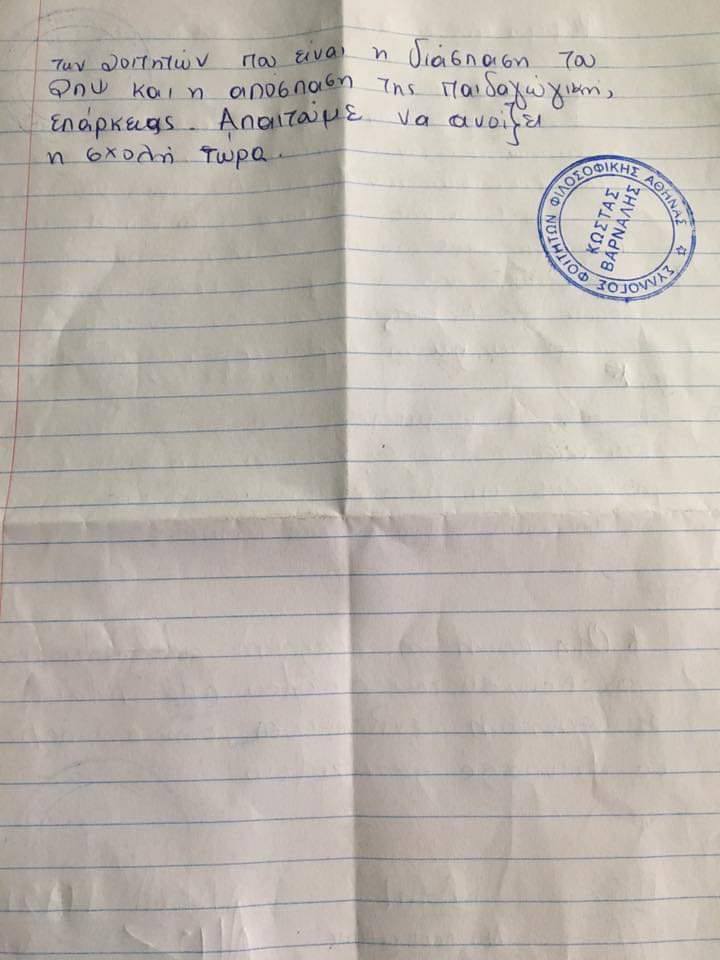 των φοιτητών που είναι η διάσπαση του
ΦΠΨ και η απόσπαση της παιδαγωγικής
επάρκειας. Απαιτούμε να ανοίξει
η σχολή τώρα.
ΣΥΛΛΟΓΟΣ ΦΟΙΤΗΤΩΝ ΦΙΛΟΣΟΦΙΚΗΣ ΑΘΗΝΑΣ
ΚΩΣΤΑΣ
ΒΑΡΝΑΛΗΣ